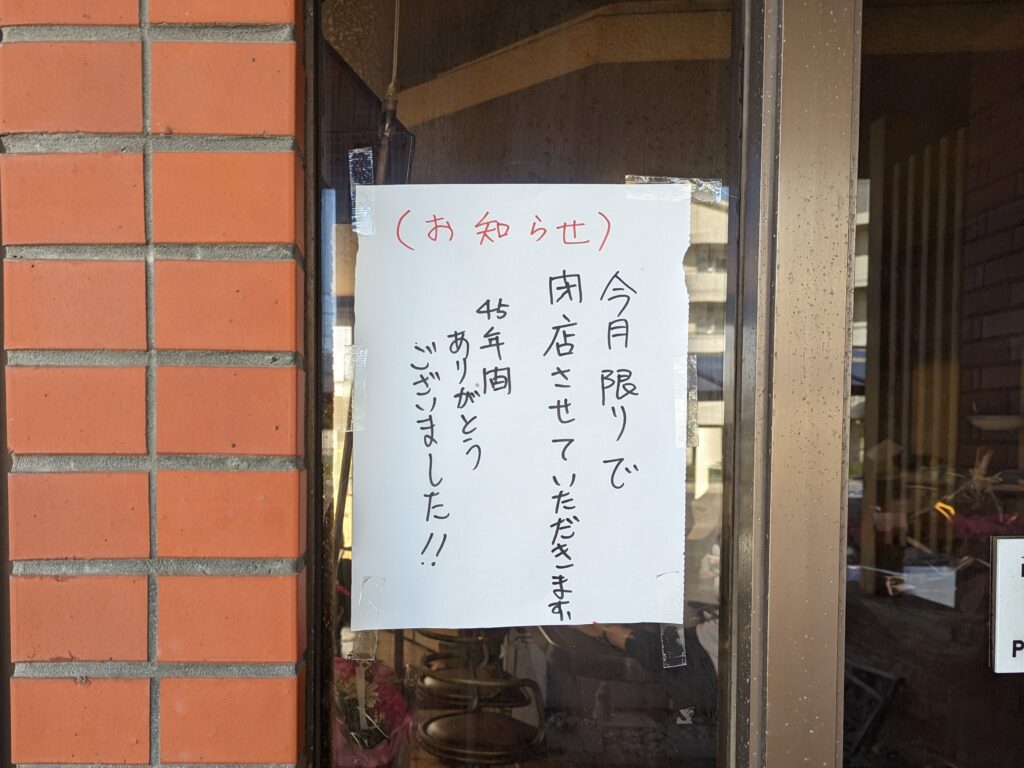 (お知らせ)
今月限りで
閉店させていただきます。
45年間
ありがとう
ございました!!
P